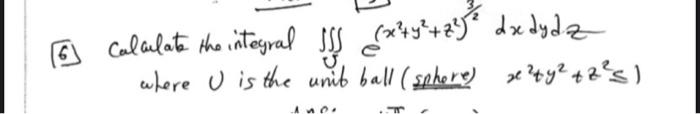 6 Calculate the integral ∭_U e^(x²+y²+z²)^3/2 dxdydz
where U is the unit ball (sphere) x²+y²+z²≤1